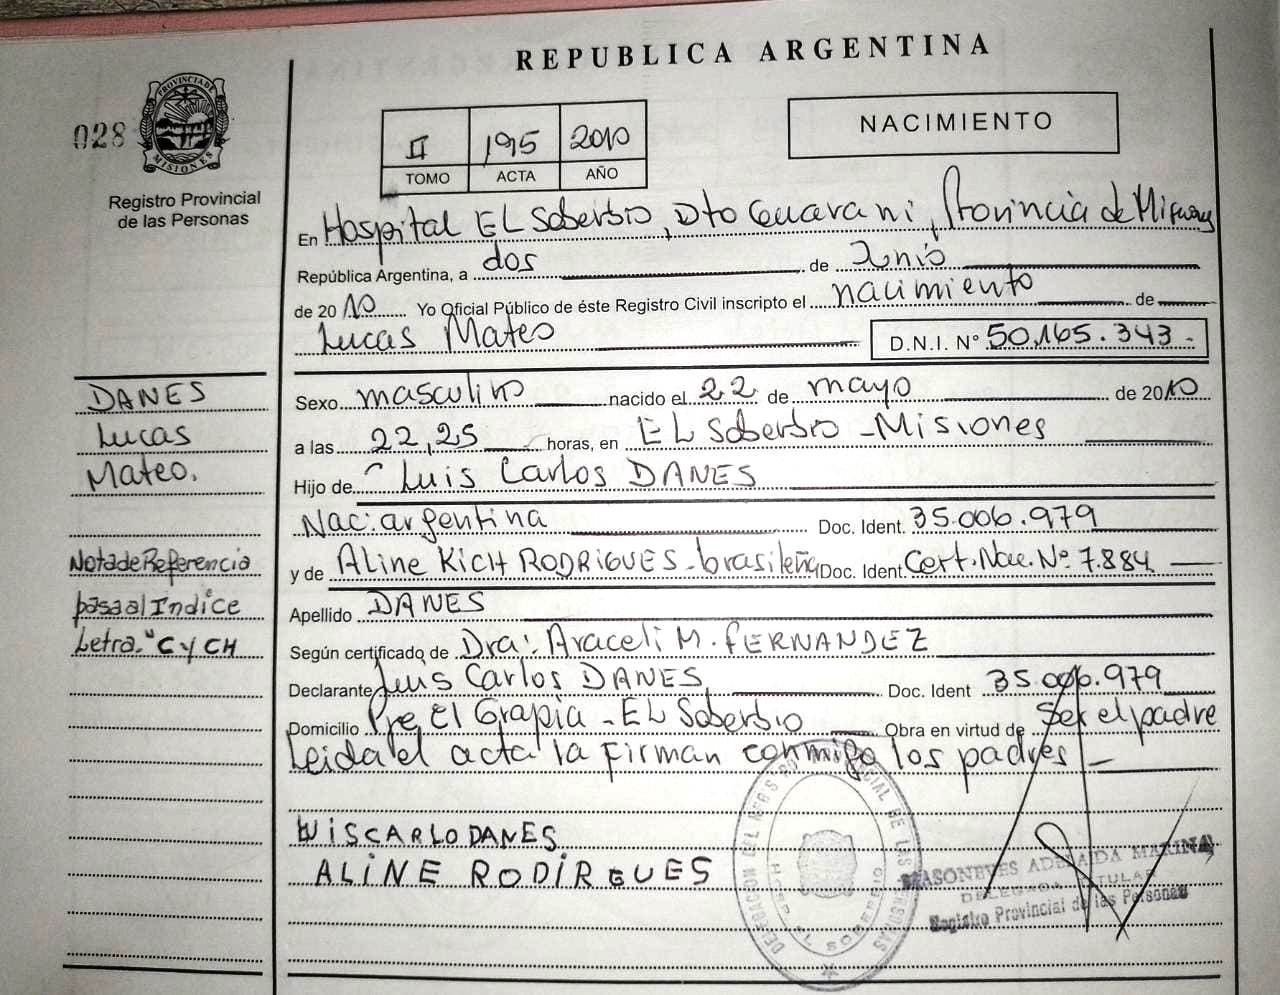 REPUBLICA ARGENTINA
028
PROVINCIA DE MISIONES
Registro Provincial
de las Personas
II 195 2010
TOMO ACTA AÑO
NACIMIENTO
En Hospital EL Soberbio, Dto Guarani, Provincia de Misiones
República Argentina, a dos de Junio
de 2010 Yo Oficial Público de éste Registro Civil inscripto el nacimiento de
Lucas Mateo D.N.I. Nº 50.165.343.-
DANES
Lucas
Mateo.
Nota de Referencia
pasa al Indice
Letra "C y CH
Sexo masculino nacido el 22 de mayo de 2010
a las 22,25 horas, en EL Soberbio - Misiones
Hijo de Luis Carlos DANES
Nac. argentina Doc. Ident. 35.006.979
y de Aline KICH RODRIGUES - brasileña Doc. Ident. Cert. Nac. Nº 7.884
Apellido DANES
Según certificado de Dra: Araceli M. FERNANDEZ
Declarante Luis Carlos DANES Doc. Ident 35.006.979
Domicilio Pje El Grapia - EL Soberbio Obra en virtud de Ser el padre
Leida el acta la firman conmigo los padres -
LUISCARLODANES
ALINE RODIRGUES
HOSP. EL SOBERBIO
MASONEVES ADELAIDA MARINA
DELEGADA TITULAR
Registro Provincial de las Personas